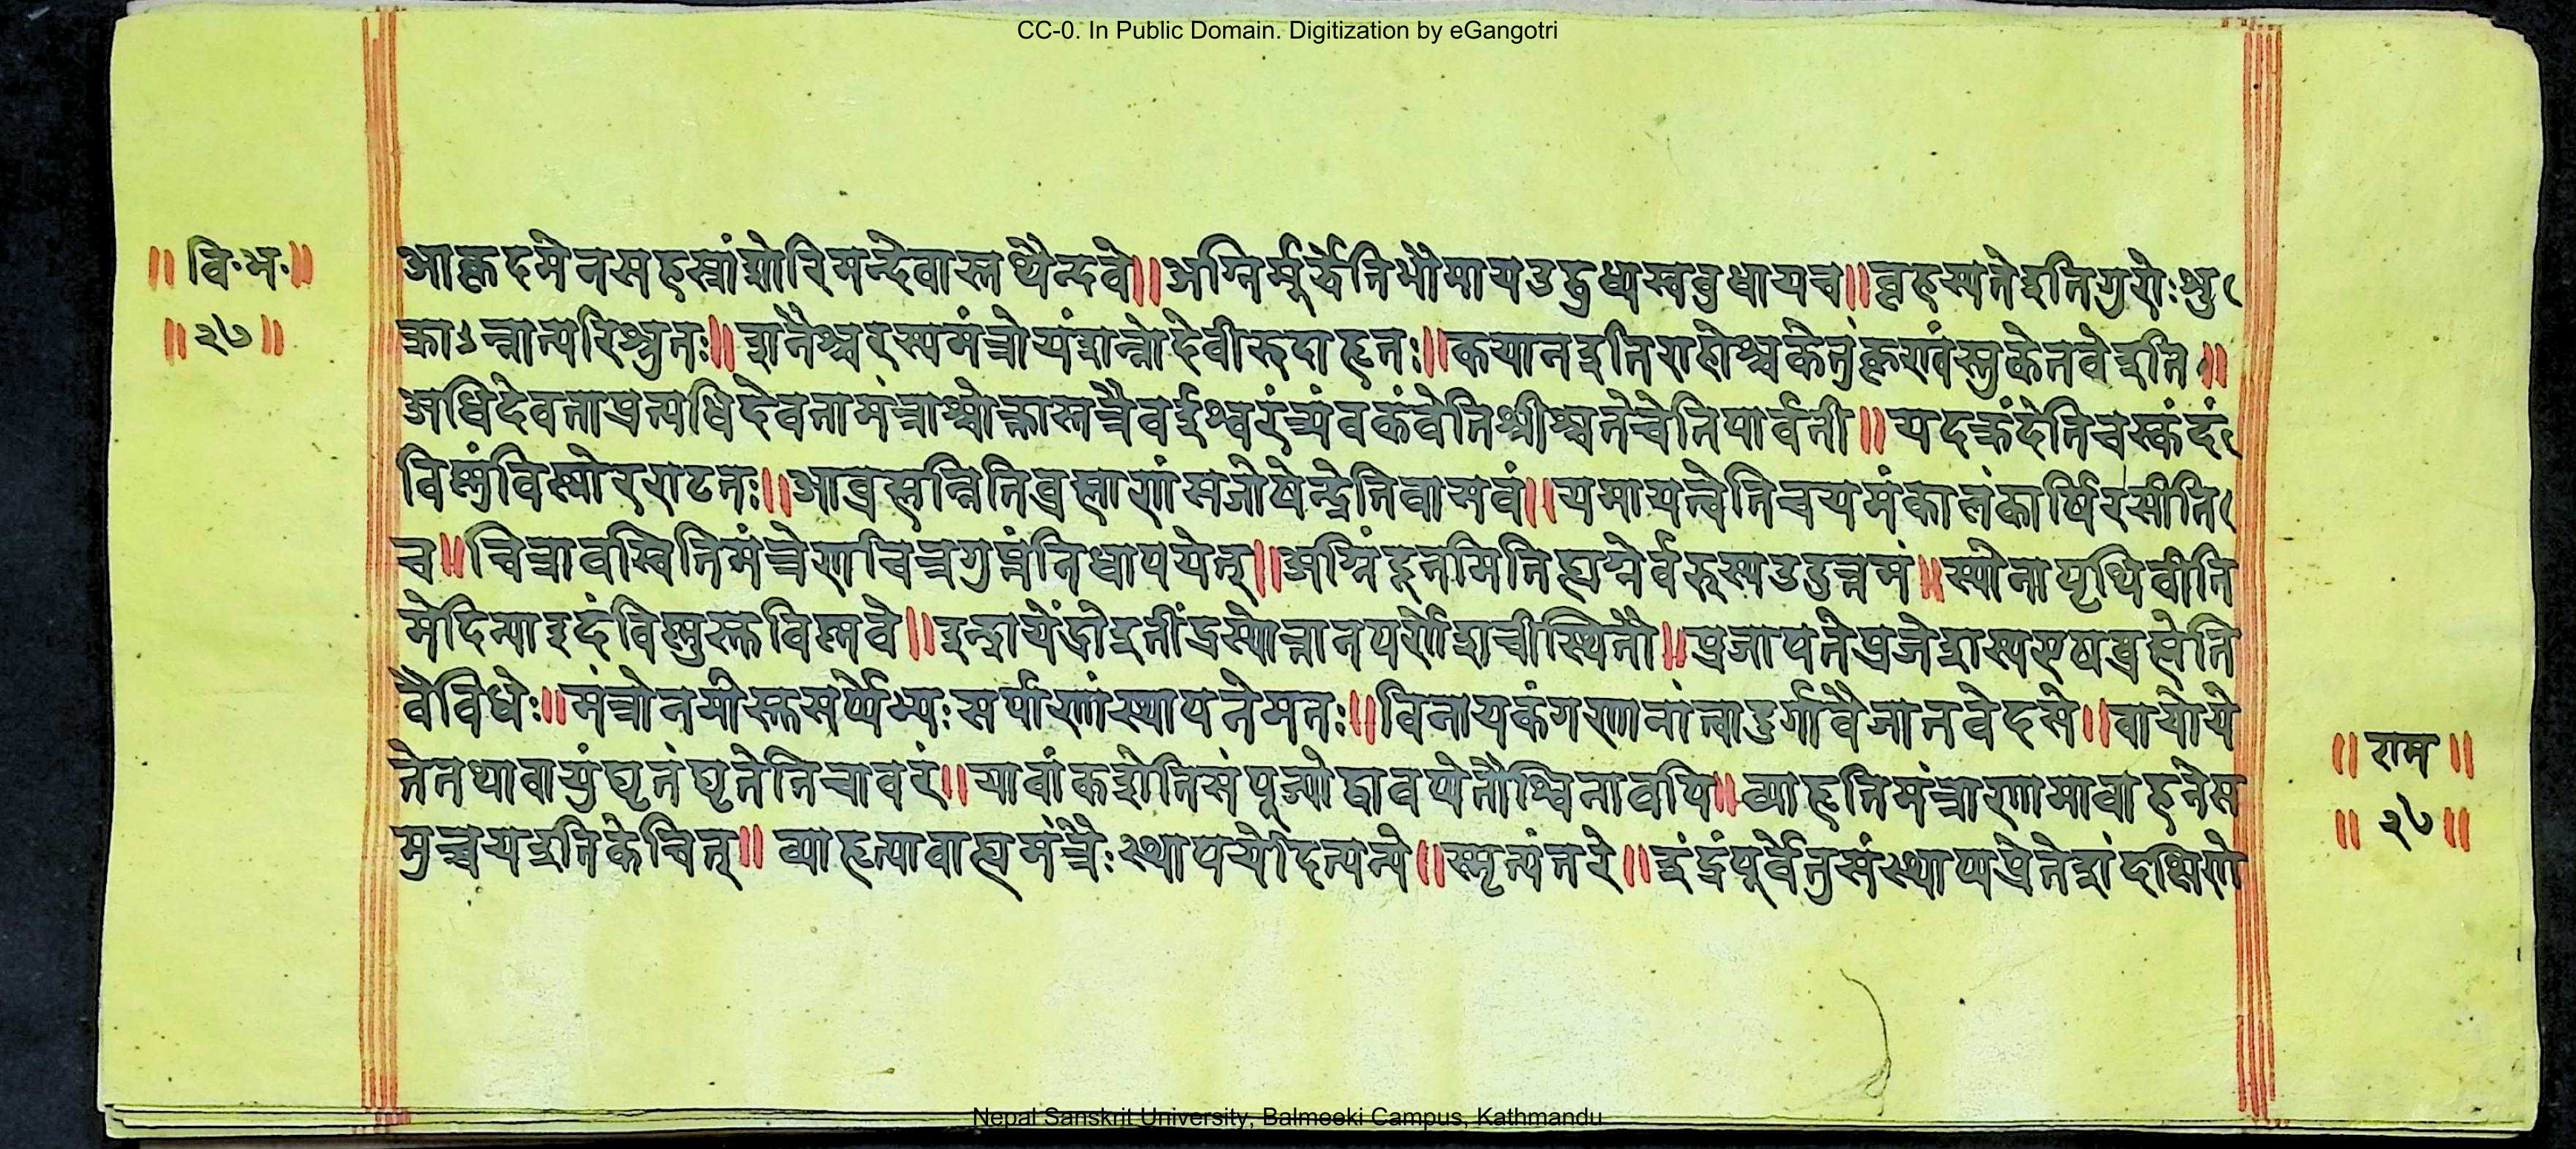 CC-0. In Public Domain. Digitization by eGangotri
॥ वि॰ भ॰॥
॥ २७ ॥
आकृदमेनसहस्रांशोरिमन्देवास्तथैन्दवे॥अग्निर्मूर्द्धेतिभौमायउद्बुध्यस्वबुधायच॥बृहस्पतेइतिगुरोःशु
क्राऽन्नात्परिश्रुतः॥शनैश्चरस्यमंत्रोयंशन्नोदेवीरुदाहृतः॥कयानइतिराहोश्चकेतुंकृण्वंस्तुकेतवेइति॥
अधिदेवताप्रत्यधिदेवतामंत्राश्चोक्तास्तत्रैवईश्वरंत्र्यंवकंवेतिश्रीश्चतेचेतिपार्वती॥यदक्रंदेतिचस्कंदं
विष्णुंविष्णोरराटतः॥आब्रह्मन्नितिब्रह्माणंसजोषेन्द्रेतिवासवं॥यमायत्वेतिचयमंकालंकार्षिरसीति
च॥चित्रावस्वितिमंत्रेणचित्रगुप्तंनिधापयेत्॥अग्निंदूतमितिह्यग्नेर्वरुस्यउदुत्तमं॥स्योनापृथिवीति
मेदिन्याइदंविष्णुस्तविष्णवे॥इन्द्रायेंद्रोइतींद्रस्योत्तानपर्णेशचीस्थितौ॥प्रजापतेप्रजेशस्यएषब्रह्मेति
वैविधेः॥मंत्रोनमोस्तसर्प्पेभ्यःसर्पाणांस्थापनेमतः॥विनायकंगणानांत्वादुर्गावैजातवेदसे॥वायोये
तेतथावायुंघृतंघृतेतिचावरं॥यावांकशेतिसंपूज्योद्वावप्येतौश्विनावपि॥व्याहृतिमंत्राणामावाहनेस
मुच्चयइतिकेचित्॥ व्याहृत्यावाह्यमंत्रैःस्थापयेदित्यन्ये॥स्मृत्यंतरे॥इंद्रंपूर्वेतुसंस्थाप्यप्रेतेशंदक्षिणे
॥ राम ॥
॥ २७॥
Nepal Sanskrit University, Balmeeki Campus, Kathmandu